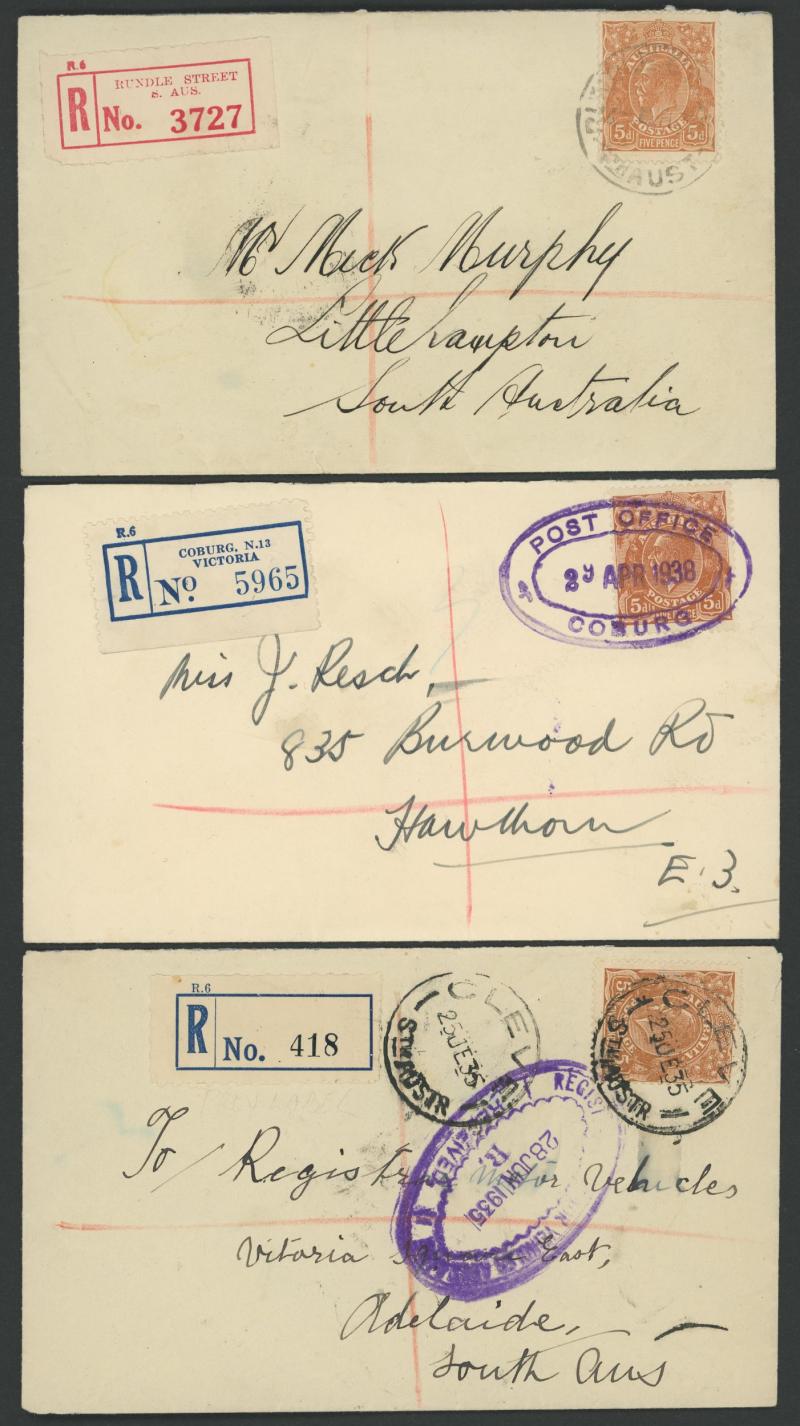 R.6
RUNDLE STREET
S. AUS.
R No. 3727
AUSTRALIA
5d POSTAGE 5d
FIVE PENCE
AUST
Mr Mick Murphy
Littlehampton
South Australia
R.6
COBURG, N.13
VICTORIA
R No. 5965
POST OFFICE
29 APR 1938
COBURG
5d POSTAGE 5d
FIVE PENCE
Miss J. Resch,
835 Burwood Rd
Hawthorn
E.3.
R.6
R No. 418
CLEVE
25 JE 35
STH AUSTR
CLEVE
25 JE 35
STH AUSTR
REGIST
28 JUN 1935
R.
To Registrar Motor Vehicles
Vitoria Square East,
Adelaide,
South Aus